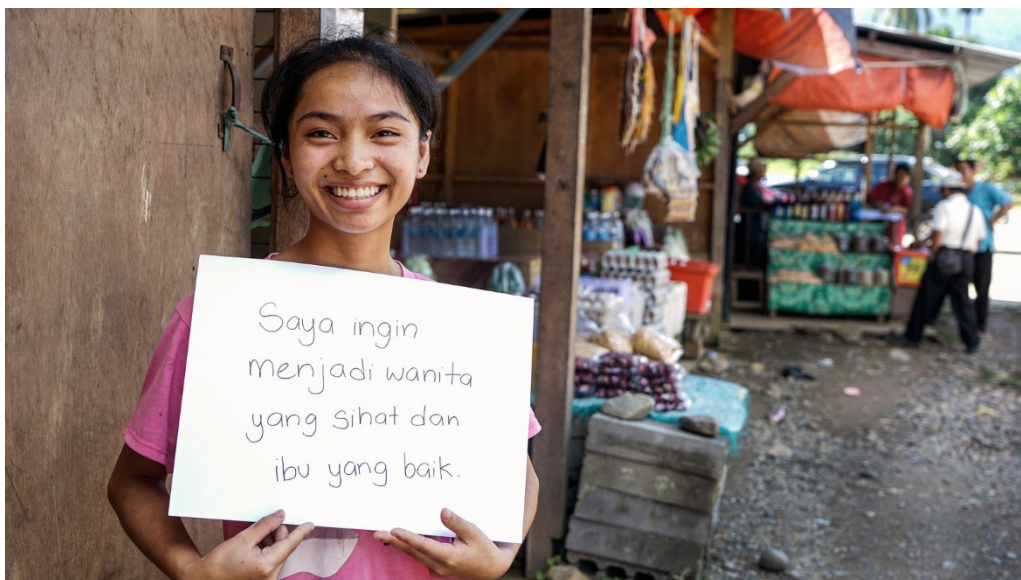 Saya ingin
menjadi wanita
yang sihat dan
ibu yang baik.